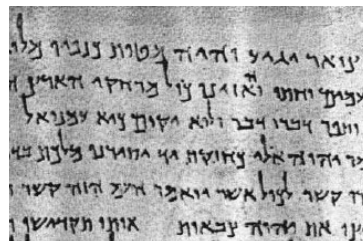 צואר יגיע והיה מטות כנפיו מלו
עמים וחתו והאזינו כול מרחקי הארץ
ותפר דברו דבר ולוא יקום כיא עמנואל
יהוה אלי כחזקת יד יסירנו מלכת בד
קשר לכול אשר יואמר העם הזה קשר
את יהוה צבאות אותו תקדישו